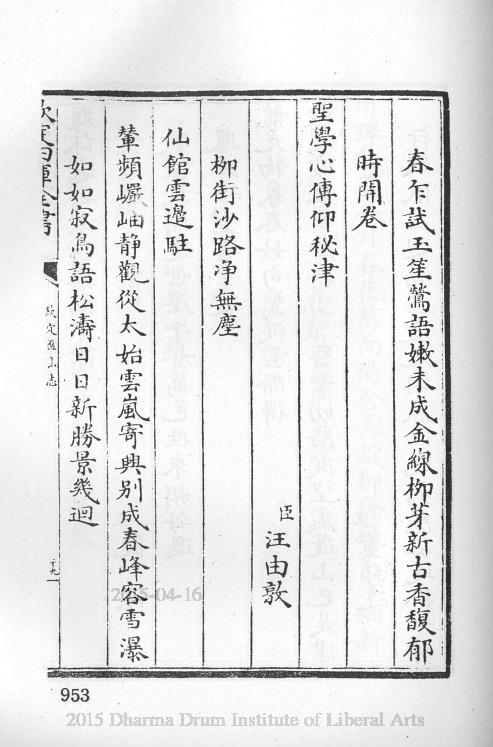 春乍試玉笙鶯語嫩未成金線柳芽新古香馥郁
時開卷
聖學心傳仰秘津
臣 汪由敦
柳街沙路净無塵
仙館雲邉駐
輦頻巘岫静觀從太始雲嵐寄興别成春峰容雪瀑
如如寂鳥語松濤日日新勝景幾迴
欽定四庫全書
欽定盤山志
2015-04-16
953
2015 Dharma Drum Institute of Liberal Arts